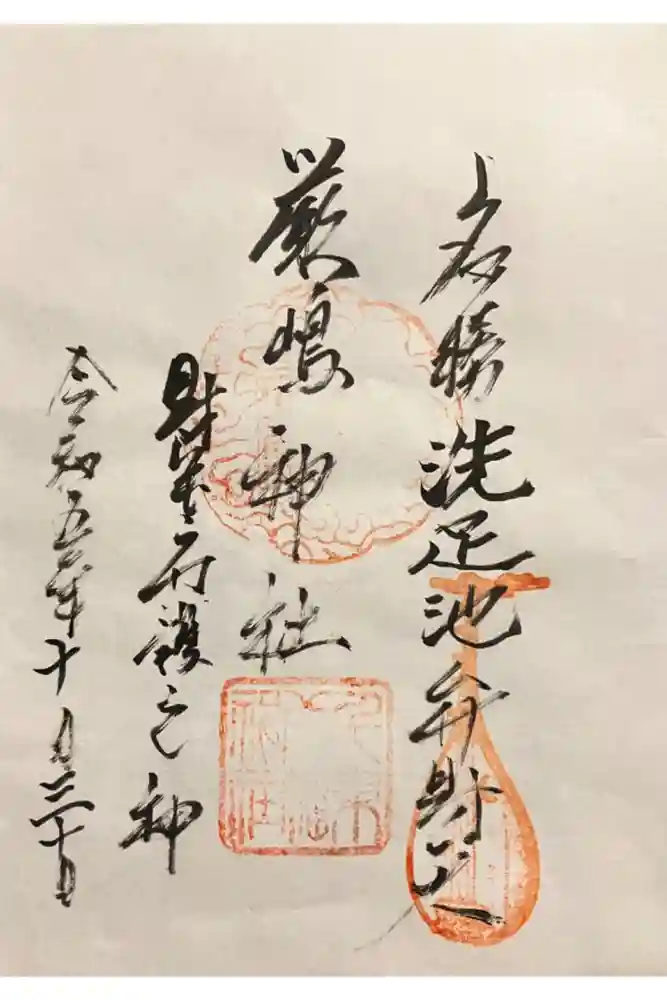 名勝 洗足池弁財天
厳嶋神社
財 護之神
令和五年十月三十日